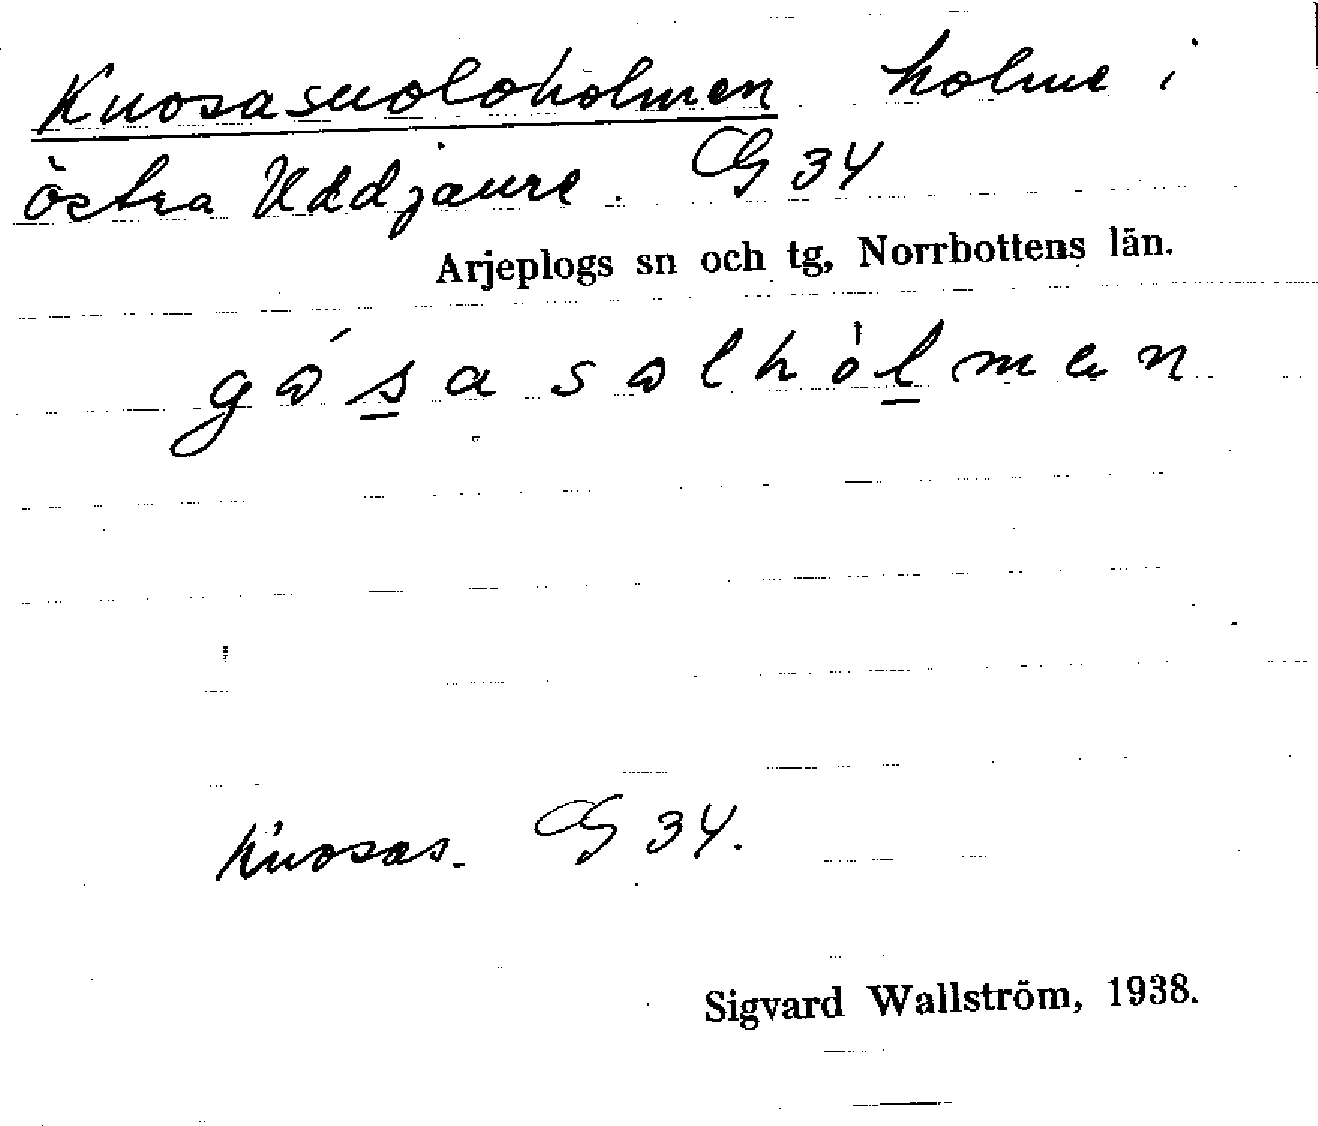 Kuosasuoloholmen holme i
östra Uddjaure. G 34
Arjeplogs sn och tg, Norrbottens län.
gósasolhòlmen
Kuosas. G 34.
Sigvard Wallström, 1938.